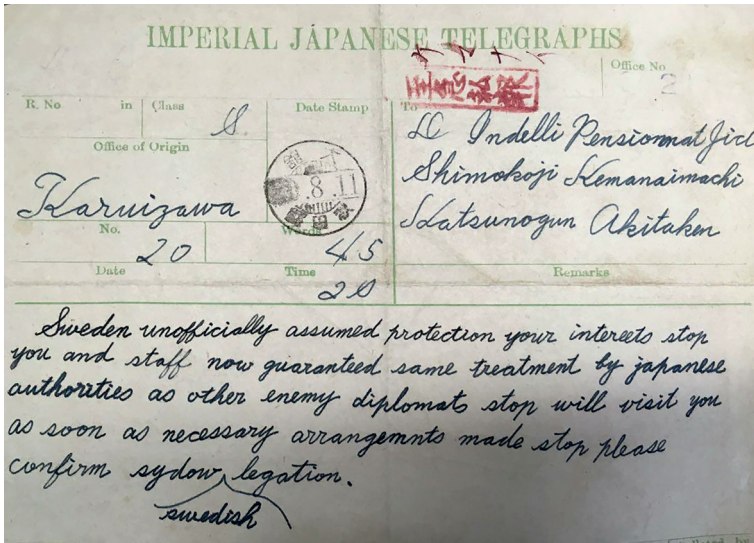 IMPERIAL JAPANESE TELEGRAPHS
Office No
2
R. No in Class S.
Date Stamp
To
Office of Origin
Karuizawa
8.11
LC Indelli Pensionnat
Shimokoji Kemanaimachi
Katsunogun Akitaken
No. 20
Words 45
Date
Time 20
Remarks
Sweden unofficially assumed protection your intereets stop
you and staff now guaranteed same treatment by japanese
authorrties as other enemy diplomats stop will visit you
as soon as necessary arrangemnts made stop please
confirm sydow legation.
swedish